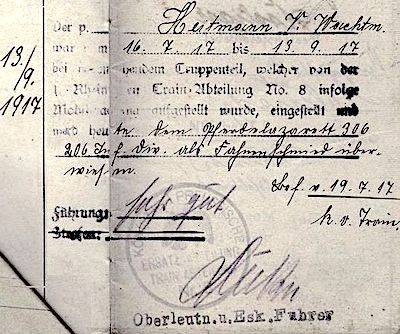 Der p. Heitmann V. Wachtm.
13./9. 1917
war vom 16. 7. 17 bis 13. 9. 17
bei nebenstehendem Truppenteil, welcher von der
Rheinischen Train-Abteilung No. 8 infolge
Mobilmachung aufgestellt wurde, eingestellt und
wird heute dem Pferdelazarett 306
206 Inf. Div. als Fahnenschmied über-
wiesen.
Bef. v. 19. 7. 17
Führung: sehr gut
k. o. Train.
Strafen:
Oberleutn. u. Esk. Führer